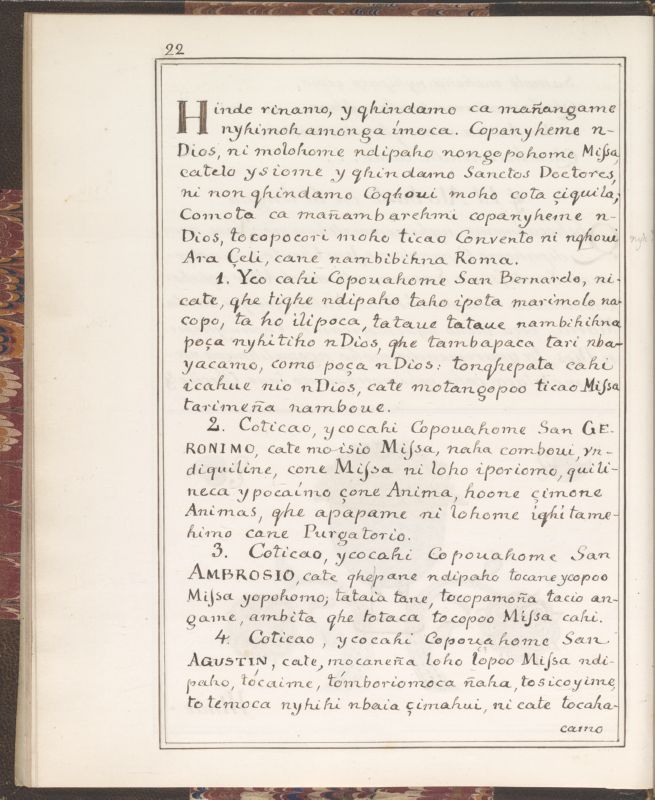 22
Hinde rinamo, y qhindamo ca mañangame
nyhimohamonga ímoca. Copanyheme n-
Dios, ni molohome ndipaho nongopohome Miſsa,
catelo ysiome y qhindamo Sanctos Doctores,
ni non qhindamo Coqhoui moho cota çiquila;
Comota ca mañambarehmi copanyheme n-
Dios, tocopocori moho ticao Convento ni nqhoui
Ara Çeli, cane nambibihna Roma.
1. Yco cahi Copouahome San Bernardo, ni-
cate, qhe tiqhe ndipaho taho ipota marimolo na-
copo, ta ho ilipoca, tataue tataue nambihihna
poça nyhitiho nDios, qhe tambapaca tari nba-
yacamo, como poça nDios: tonqhepata cahi
icahue nio nDios, cate motangopoo ticao Miſsa
tarimeña namboue.
2. Coticao, ycocahi Copouahome San GE-
RONIMO, cate mo isio Miſsa, naha comboui, yn-
diquiline, cone Miſsa ni loho iporiomo, quili-
neca y pocaímo çone Anima, hoone çimone
Animas, qhe apapame ni lohome iqhitame-
himo cane Purgatorio.
3. Coticao, ycocahi Copouahome San
AMBROSIO, cate qhepane ndipaho tocane ycopoo
Miſsa yopohomo; tataia tane, tocopamoña tacio an-
game, ambita qhe totaca tocopoo Miſsa cahi.
4. Coticao, ycocahi Copouahome San
AGUSTIN, cate, mocaneña loho lopoo Miſsa ndi-
paho, tócaime, tómboriomoca ñaha, tosicoyime,
totemoca nyhihi nbaia çimahui, ni cate tocaha-
camo